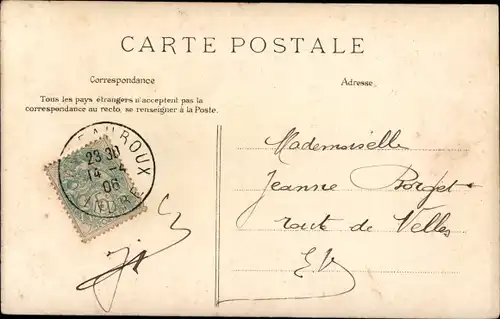 CARTE POSTALE
Correspondance
Adresse
Tous les pays étrangers n'acceptent pas la
correspondance au recto, se renseigner à la Poste.
EAUROUX
23 30
14 -4
06
INDRE
Mademoiselle
Jeanne Borget
route de Velles
E.V.